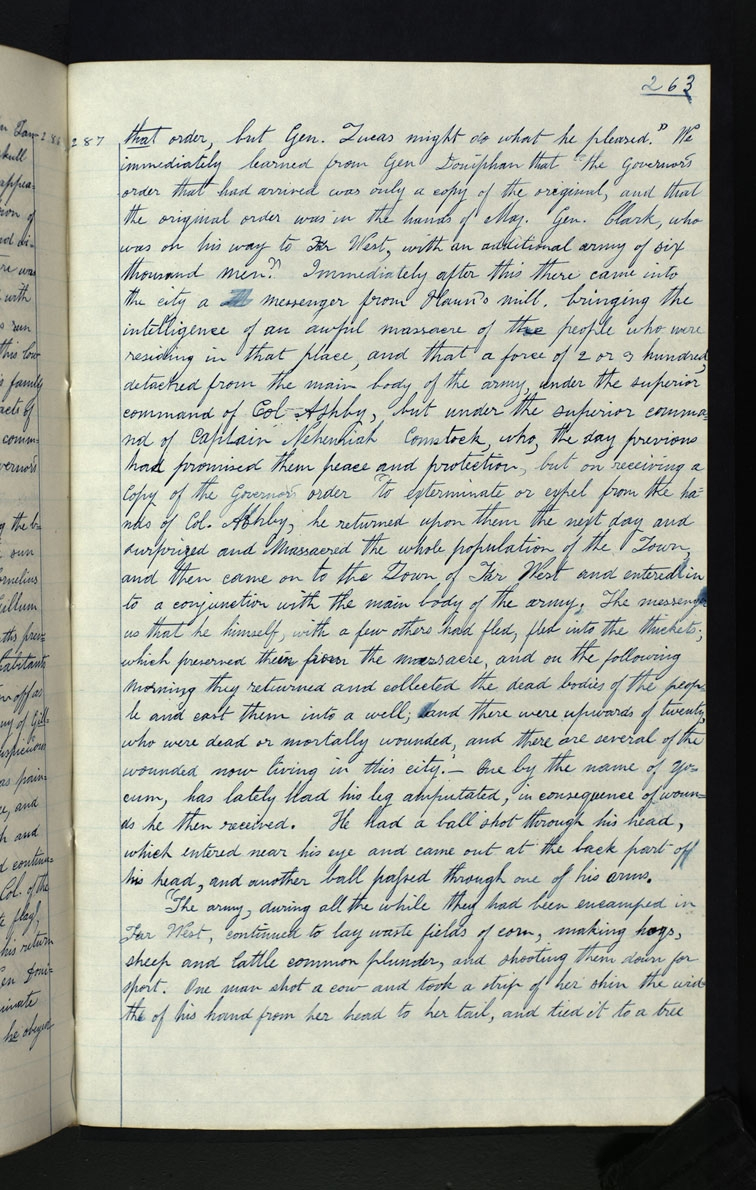 263
287 that order, but Gen. Lucas might do what he pleased." We
immediately learned from Gen Doniphan that "the Governor's
order that had arrived was only a copy of the original, and that
the original order was in the hands of Maj. Gen. Clark, who
was on his way to Far West, with an additional army of six
thousand men." Immediately after this there came into
the city a messenger from Haun's mill. bringing the
intelligence of an awful massacre of the people who were
residing in that place, and that a force of 2 or 3 hundred,
detached from the main body of the army, under the superior
command of Col Ashby, but under the superior comma=
nd of Captain Nehemiah Comstock, who, the day previous
had promised them peace and protection, but on receiving a
Copy of the Governor's order "to exterminate or expel from the ha=
nds of Col. Ashby, he returned upon them the next day and
surprized and Massacred the whole population of the Town,
and then came on to the Town of Far West and entered in
to a conjunction with the main body of the army. The messenger
us that he himself, with a few others had fled, fled into the thickets,
which preserved them from the massacre, and on the following
morning they returned and collected the dead bodies of the peop=
le and cast them into a well; and there were upwards of twenty,
who were dead or mortally wounded, and there are several of the
wounded now living in this city.— One by the name of Yo=
cum, has lately had his leg amputated, in consequence of woun=
ds he then received. He had a ball shot through his head,
which entered near his eye and came out at the back part off
his head, and another ball passed through one of his arms.
The army, during all the while they had been encamped in
Far West, continued to lay waste fields of corn, making hogs,
sheep and Cattle common plunder, and shooting them down for
sport. One man shot a cow and took a strip of her skin the wid
the of his hand from her head to her tail, and tied it to a tree